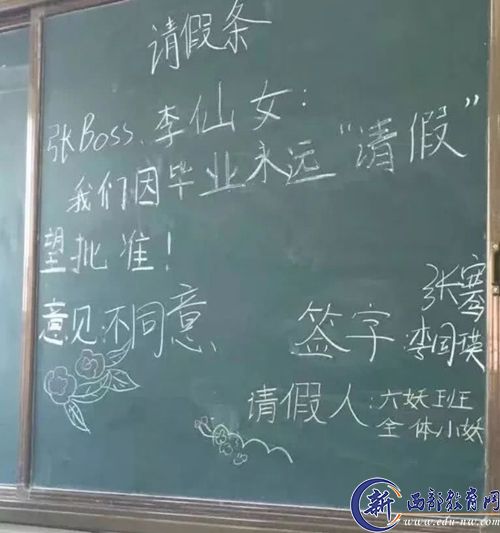 请假条
张Boss、李仙女：
我们因毕业永远“请假”
望批准！
意见：不同意、
签字：张骞
李国瑛
请假人：六妖班
全体小妖
新 西部教育网
www.edu-nw.com